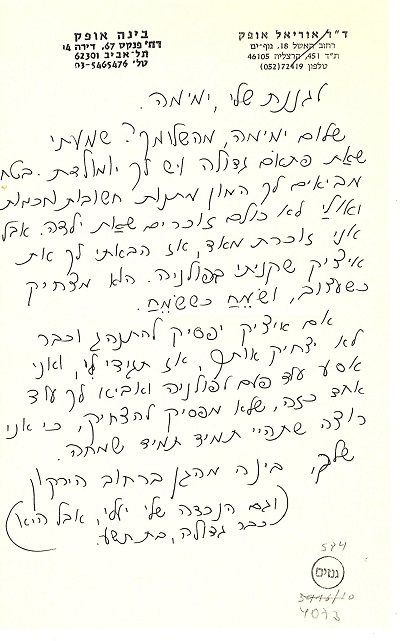 ד"ר אוריאל אופק
רחוב האשל 18, נוף-ים
ת"ד 451, הרצליה 46105
טלפון 72419(052)
בינה אופק
רח' פנקס 67, דירה 14
תל-אביב 62301
טל' 03-5465476
לגננת שלי, ימימה.
שלום ימימה, מה שלומך? שמעתי
שאת פתאום גדולה ויש לך יומולדת. בטח
מביאים לך המון מתנות חשובות וחכמות
ואולי לא כולם זוכרים שאת ילדה. אבל
אני זוכרת מאד, אז הבאתי לך את
איציק שקניתי בפולניה. הוא מצחיק
כשעצוב, ושמֵחַ כששמֵחַ.
אם איציק יפסיק להתנהג וכבר
לא יצחיק אותך, אז תגידי לי, ואני
אסע עוד פעם לפולניה ואביא לך עוד
אחד כזה, שלא מפסיק להצחיק, כי אני
רוצה שתהיי תמיד תמיד שמחה.
שלך, בינה מהגן ברחוב הירקון
(וגם הנכדה שלי יעלי, אבל היא
כבר גדולה, בת תשע.)
גנזים
4073